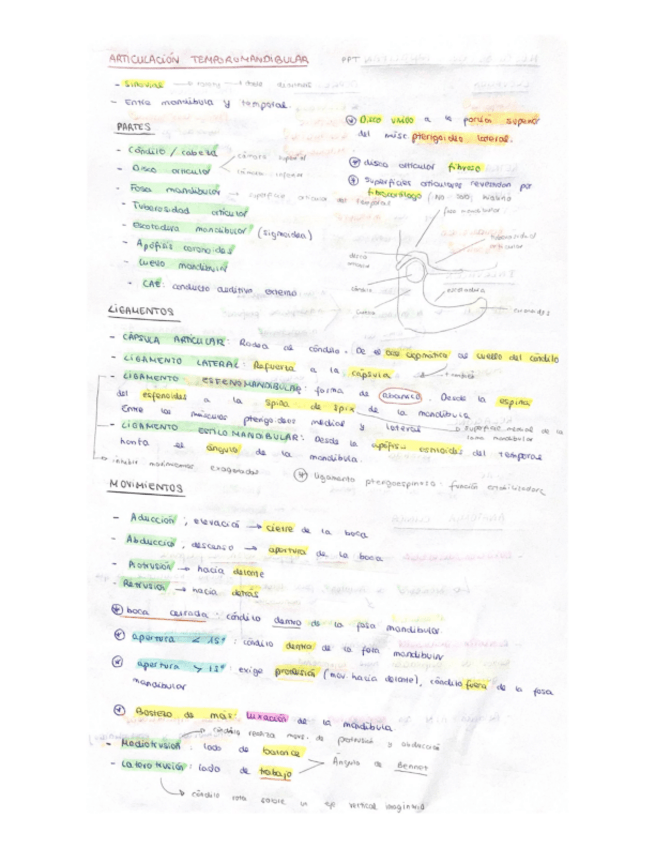 ARTICULACIÓN TEMPOROMANDIBULAR PPT
- Sinovial
- Entre mandíbula y temporal.
⊛ Disco unido a la porción superior
del músc. pterigoideo lateral.
PARTES
- Cóndilo / cabeza
- Disco articular
cámara superior
cámara inferior
⊛ disco articular fibroso
- Fosa mandibular → superficie articular del temporal
⊛ superficies articulares revestidas por
fibrocartílago (no hialino
- Tuberosidad articular
- Escotadura mandibular (sigmoidea)
- Apófisis coronoides
- Cuello mandibular
- CAE: conducto auditivo externo
fosa mandibular
tuberosidad articular
disco
cóndilo
cuello
escotadura
coronoides
LIGAMENTOS
- CÁPSULA ARTICULAR: Rodea al cóndilo. De el arco cigomático al cuello del cóndilo
- LIGAMENTO LATERAL: Refuerza a la cápsula
- LIGAMENTO ESFENOMANDIBULAR: forma de abanico. Desde la espina
del esfenoides a la spina de Spix de la mandíbula
Entre los músculos pterigoideos medial y lateral
superficie medial de la
rama mandibular
- LIGAMENTO ESTILOMANDIBULAR: Desde la apófisis estiloides del temporal
hasta el ángulo de la mandíbula.
inhibir movimientos exagerados
⊛ ligamento pterigoespinoso: función estabilizadora
MOVIMIENTOS
- Aducción, elevación → cierre de la boca
- Abducción, descenso → apertura de la boca
- Protrusión → hacia delante
- Retrusión → hacia detrás
⊛ boca cerrada: cóndilo dentro de la fosa mandibular
⊛ apertura < 15°: cóndilo dentro de la fosa mandibular
⊛ apertura > 15°: exige protrusión (mov. hacia delante), cóndilo fuera de la fosa
mandibular
⊛ Bostezo de más: luxación de la mandíbula
cóndilo realiza mov. de protrusión y abducción
- Mediotrusión: lado de balance
- Laterotrusión: lado de trabajo
Ángulo de Bennet
cóndilo rota sobre un eje vertical imaginario